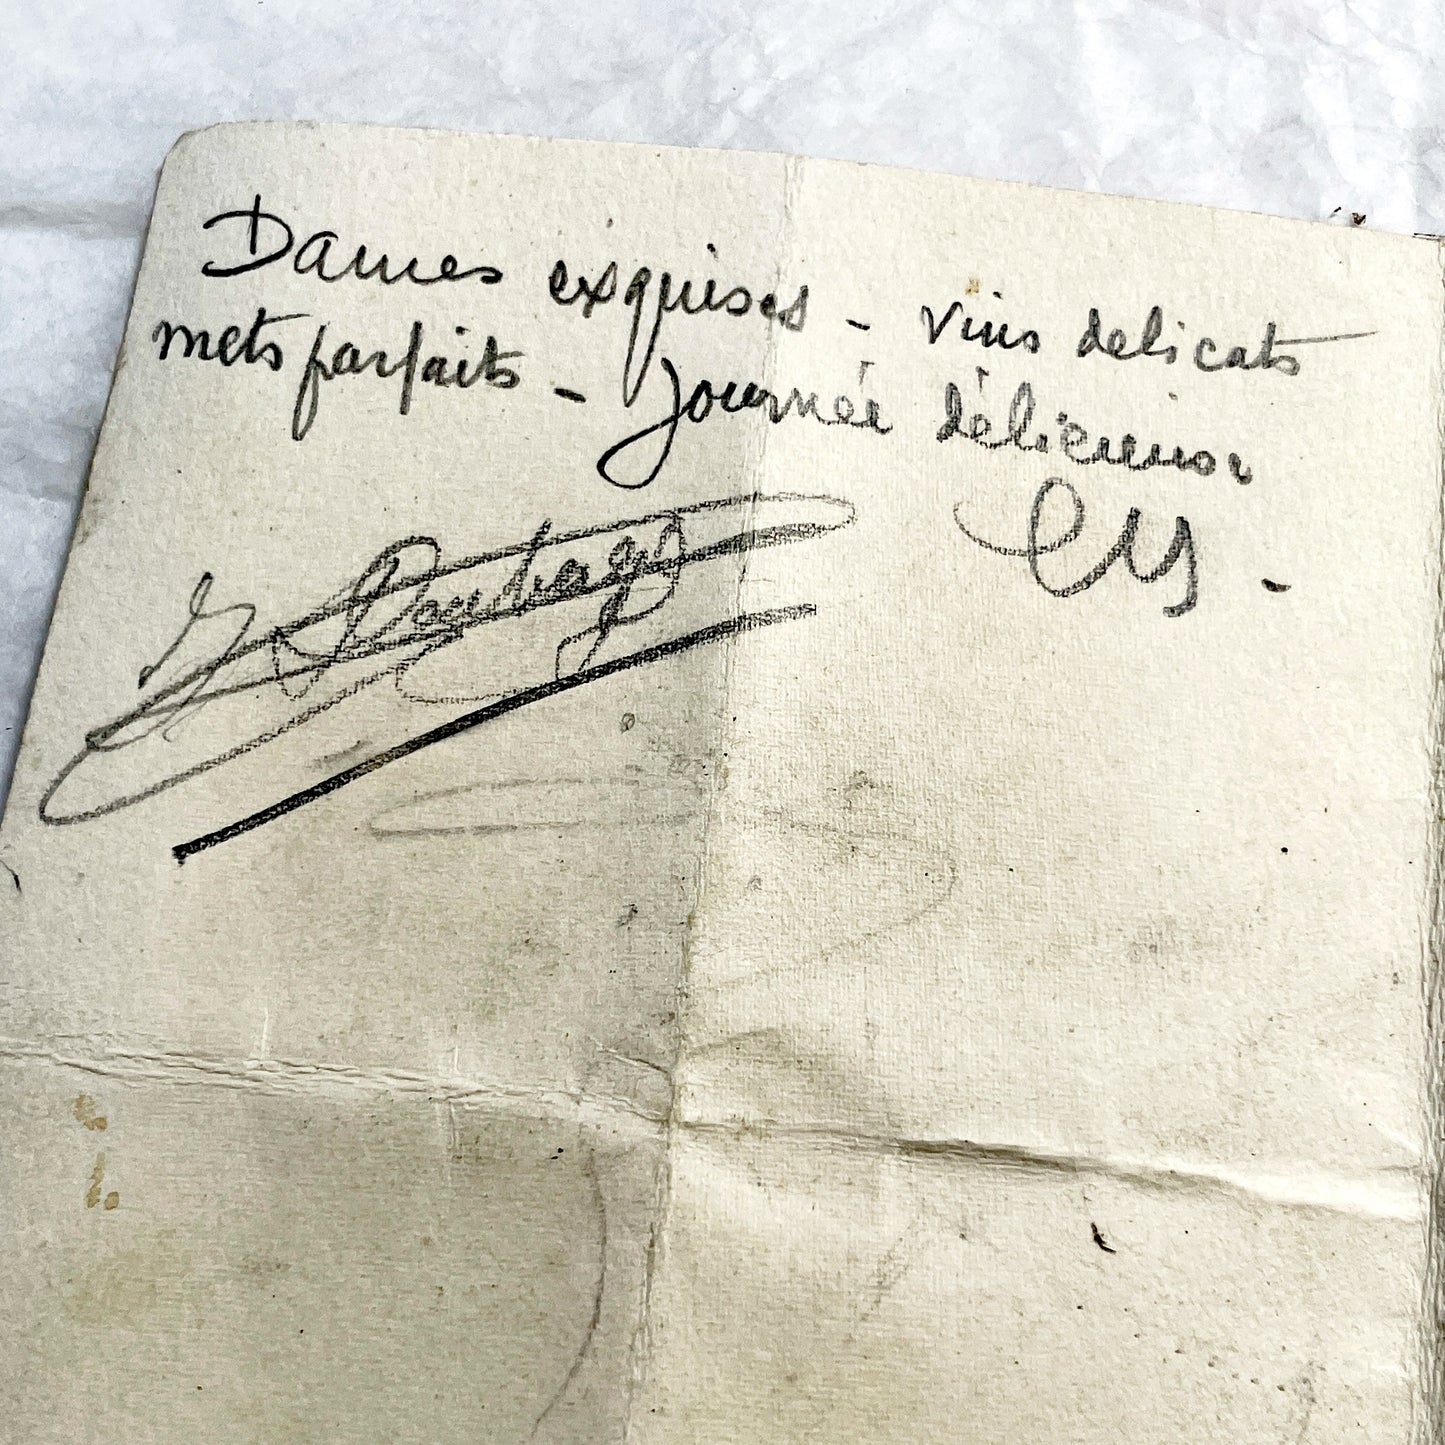 Dames exquises - vins delicats
mets parfaits - Journée délicieuse